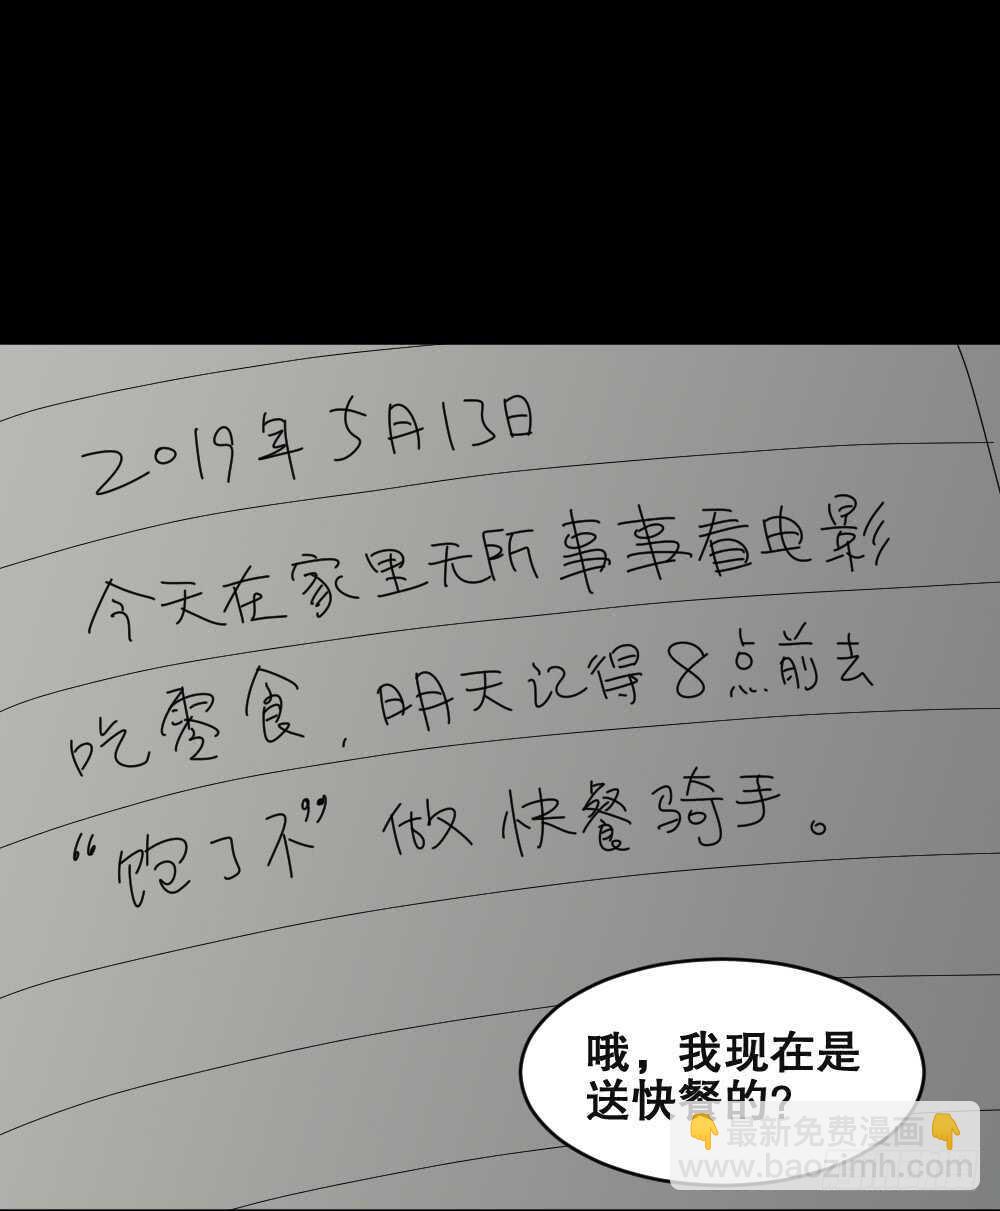 2019年5月13日
今天在家里无所事事看电影
吃零食,明天记得8点前去
“饱了不”做快餐骑手。
哦，我现在是
送快餐的?
👇最新免费漫画👇
www.baozimh.com